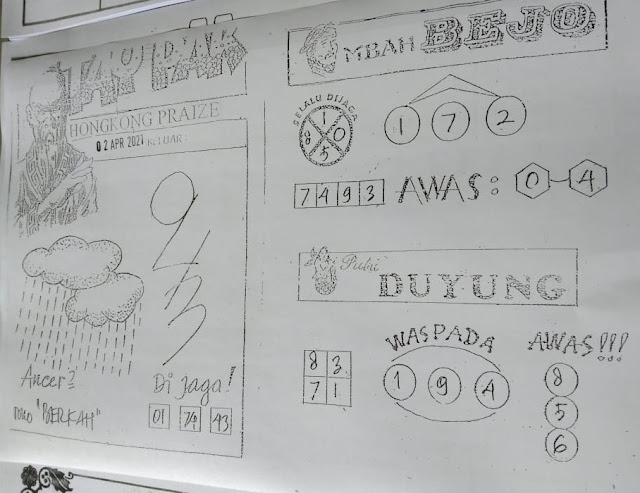 HONGKONG PRAIZE
02 APR 2021 KELUAR:
943
Ancer²
Di jaga!
TOKO "BERKAH"
01 74 43
MBAH BEJO
SELALU DIJAGA
1
8 0
5
1 7 2
7 4 9 3
AWAS: 0-4
Putri
DUYUNG
WASPADA
AWAS!!!
8 3
7 1
1 9 4
8
5
6